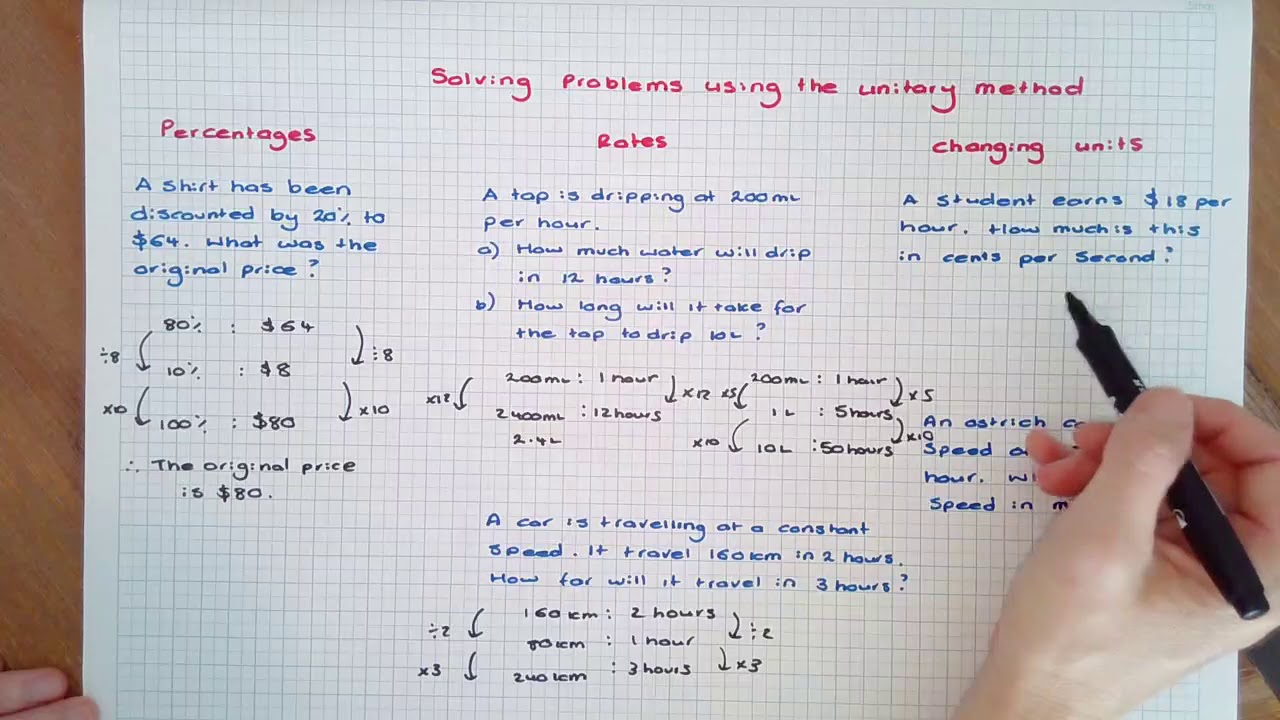 Solving Problems using the unitary method
Percentages
A shirt has been
discounted by 20% to
$64. What was the
original price?
80% : $64
÷8
÷8
10% : $8
x10
x10
100% : $80
∴ The original price
is $80.
Rates
A tap is dripping at 200mL
per hour.
a) How much water will drip
in 12 hours?
b) How long will it take for
the tap to drip 10L?
200mL : 1 hour
x12
x12
2400mL : 12hours
2.4L
200mL : 1 hour
x5
x5
1L : 5hours
x10
x10
10L : 50hours
A car is travelling at a constant
speed. It travel 160km in 2 hours.
How far will it travel in 3 hours?
160km : 2 hours
÷2
÷2
80km : 1 hour
x3
x3
240km : 3hours
Changing units
A student earns $18 per
hour. How much is this
in cents per second?
An ostrich
Speed
hour.
Speed in